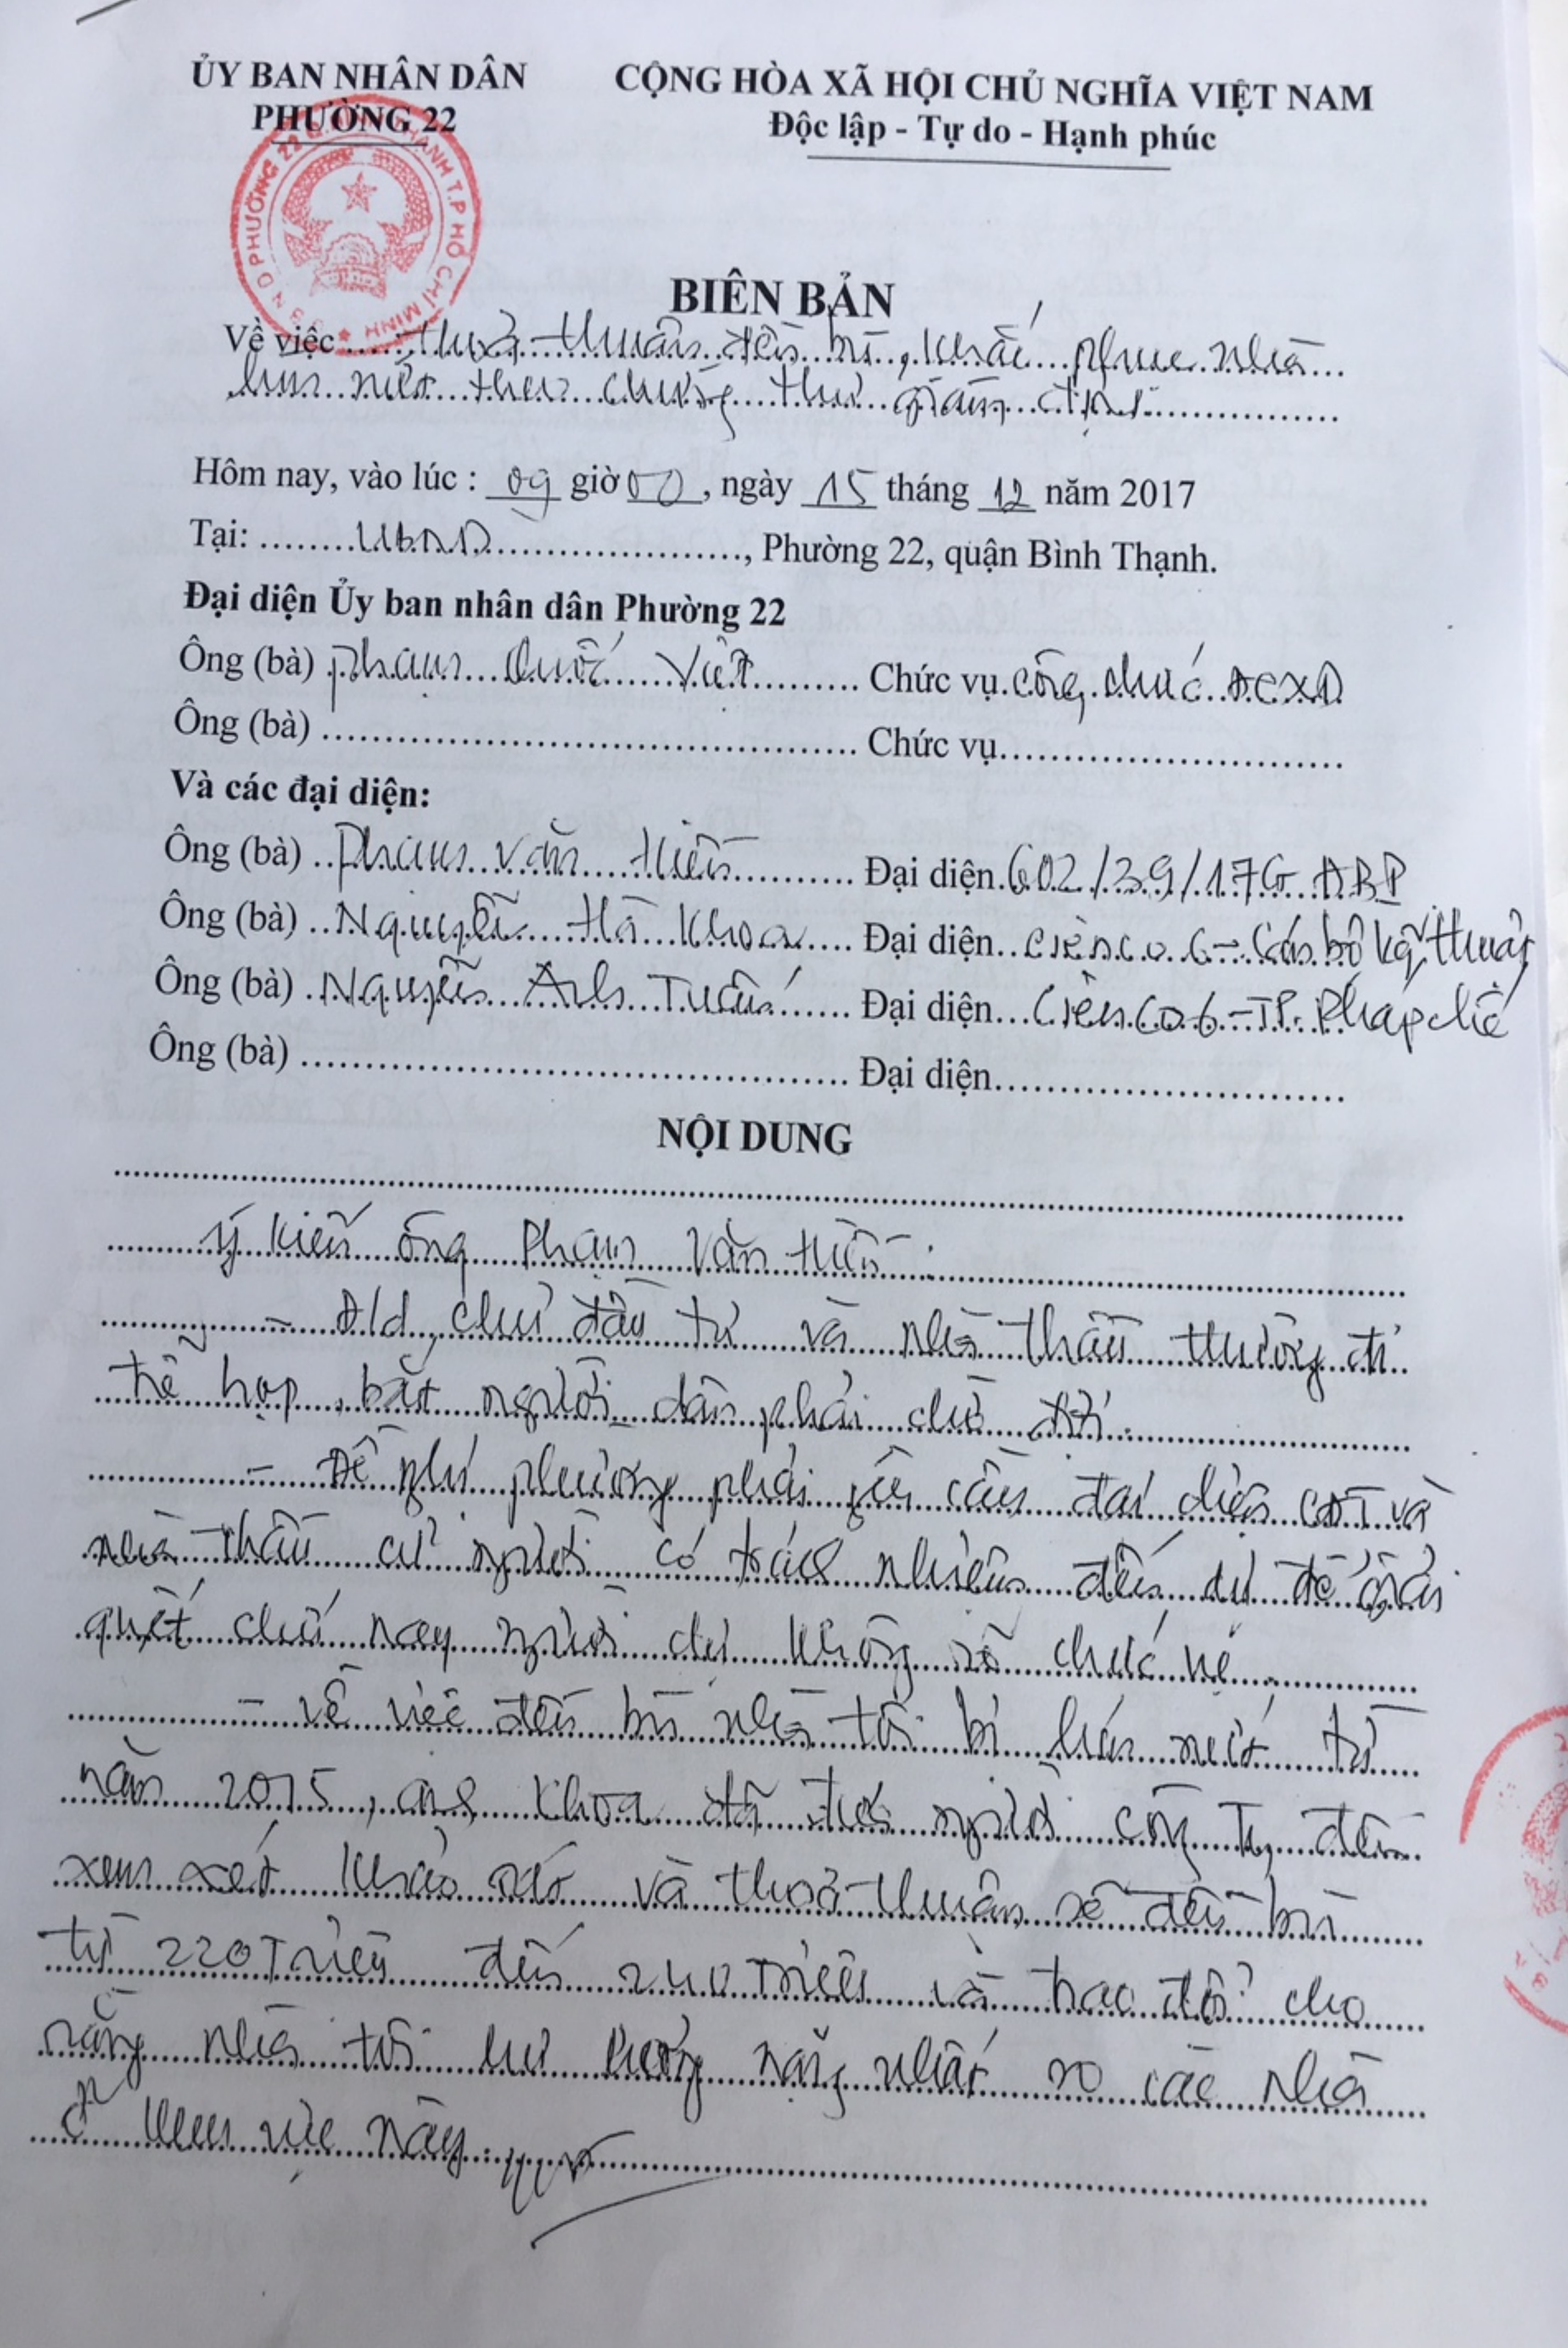 ỦY BAN NHÂN DÂN
PHƯỜNG 22
CỘNG HÒA XÃ HỘI CHỦ NGHĨA VIỆT NAM
Độc lập - Tự do - Hạnh phúc
BIÊN BẢN
Về việc thoả thuận đền bù, khắc phục nhà
lún nứt theo chứng thư giám định
Hôm nay, vào lúc : 09 giờ 00, ngày 15 tháng 12 năm 2017
Tại: UBND, Phường 22, quận Bình Thạnh.
Đại diện Ủy ban nhân dân Phường 22
Ông (bà) Phạm Quốc Việt Chức vụ công chức ĐCXD
Ông (bà) Chức vụ
Và các đại diện:
Ông (bà) Phạm Văn Đại diện 602/39/17G ĐBP
Ông (bà) Nguyễn Hà Khoa Đại diện Cienco 6 - Cán bộ kỹ thuật
Ông (bà) Nguyễn Anh Tuấn Đại diện Cienco 6 - TP. Pháp chế
Ông (bà) Đại diện
NỘI DUNG
Ý kiến ông Phạm Văn :
- Đ/d chủ đầu tư và nhà thầu thường đi
trễ họp, bắt người dân phải chờ đợi.
- Đề nghị phường phải yêu cầu đại diện CĐT và
nhà thầu cử người có trách nhiệm đến dự để giải
quyết chứ nay người dự không rõ chức vụ.
- Về việc đền bù nhà tôi bị lún nứt từ
năm 2015, anh Khoa đã đưa người công ty đến
xem xét khảo sát và thoả thuận sẽ đền bù
từ 220 triệu đến 240 triệu và trao đổi cho
rằng nhà tôi hư hỏng nặng nhất so các nhà
ở khu vực này.